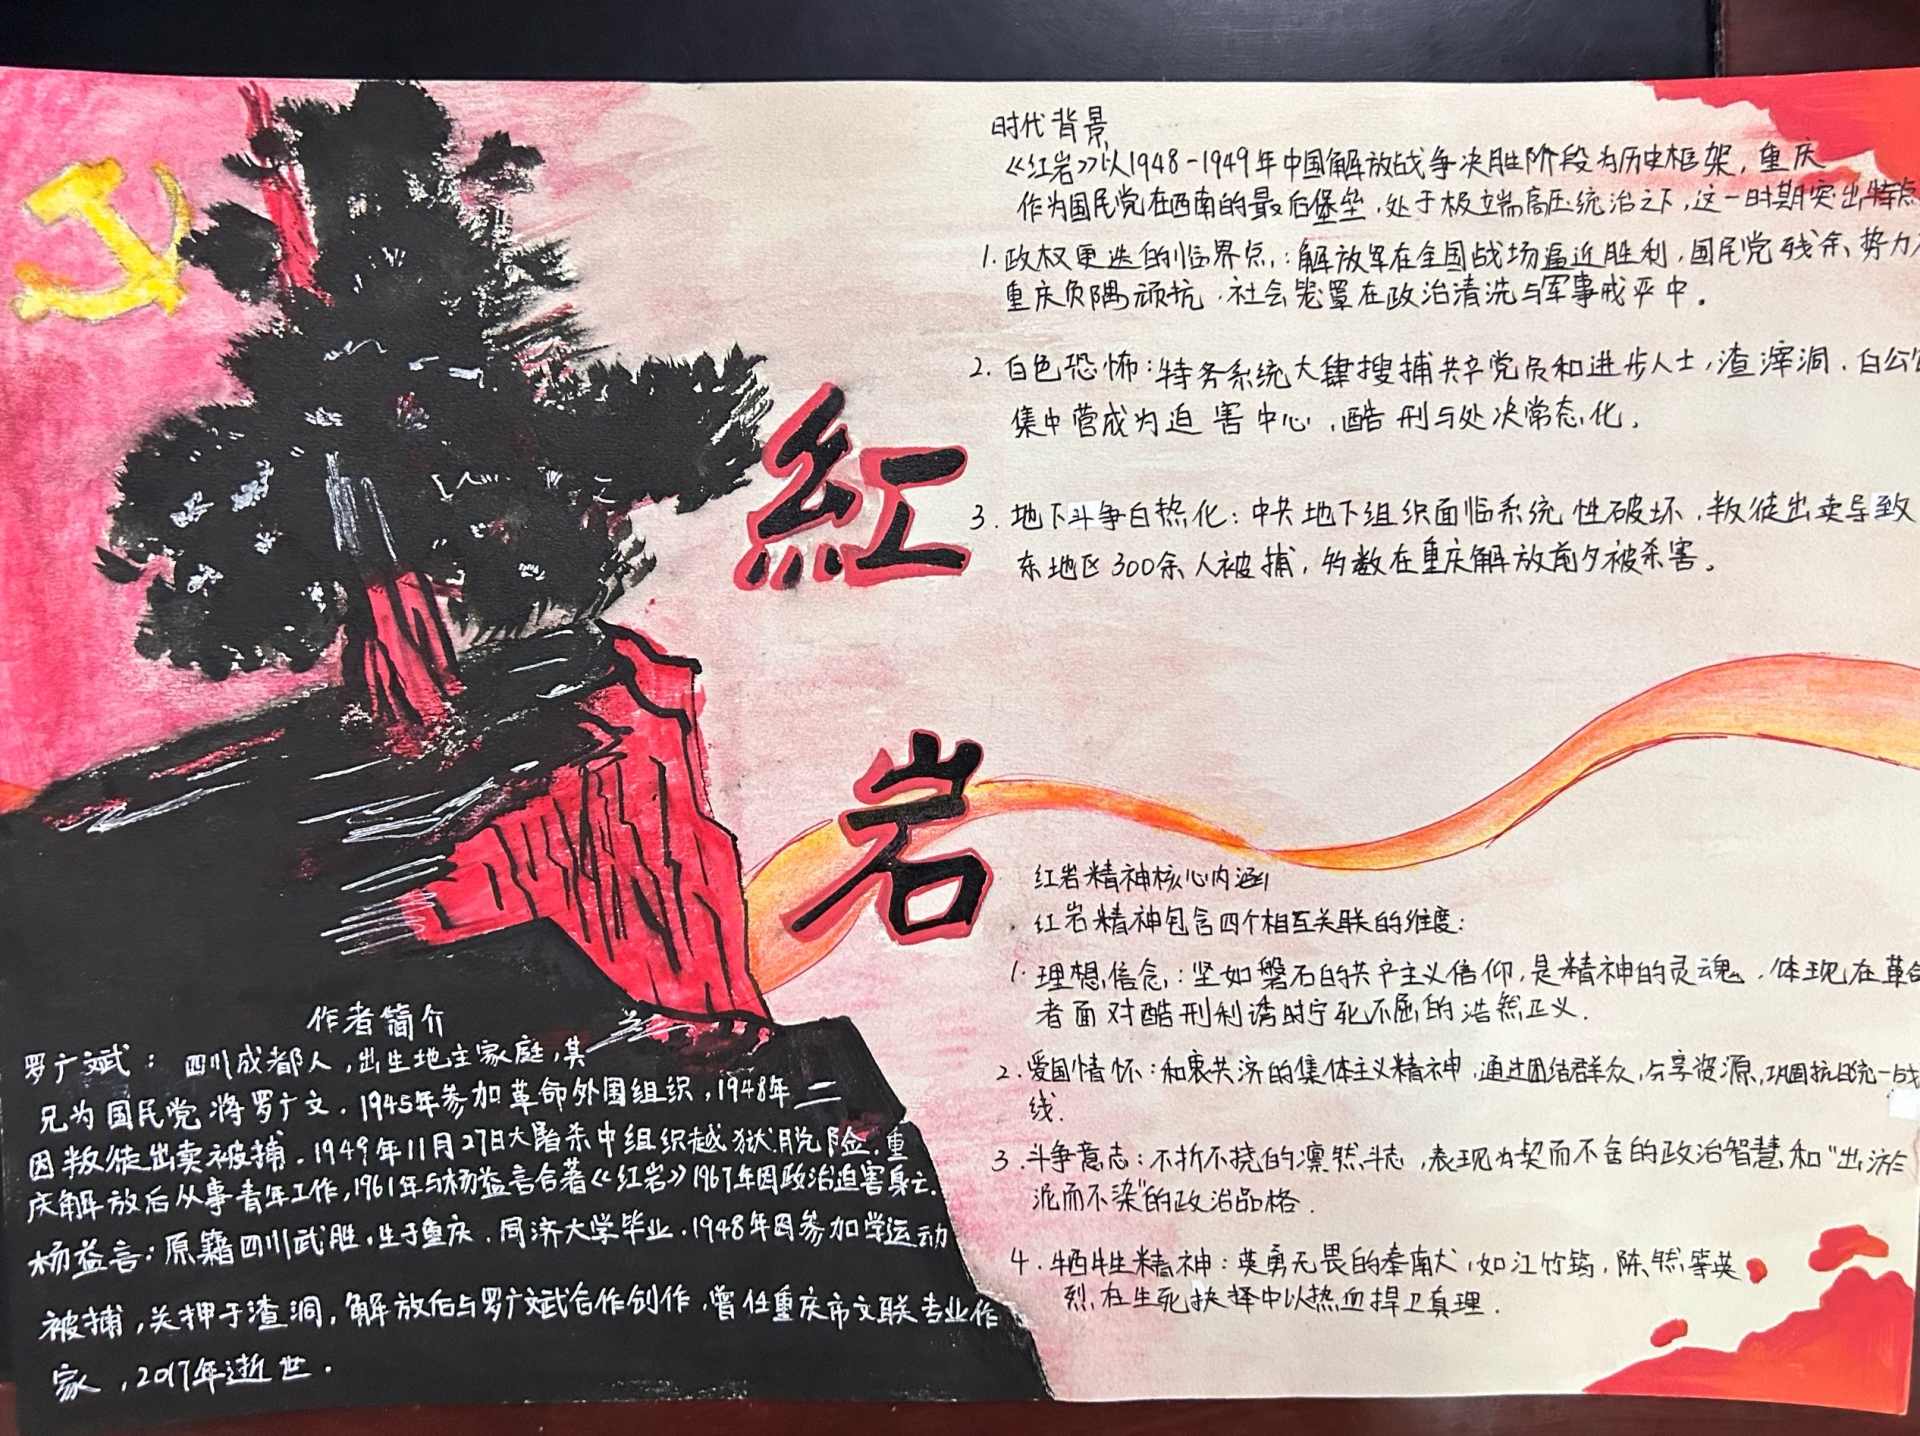 时代背景
《红岩》以1948-1949年中国解放战争决胜阶段为历史框架，重庆
作为国民党在西南的最后堡垒，处于极端高压统治之下，这一时期突出特点
1. 政权更迭的临界点：解放军在全国战场逼近胜利，国民党残余势力
重庆负隅顽抗，社会笼罩在政治清洗与军事戒严中。
2. 白色恐怖：特务系统大肆搜捕共产党员和进步人士，渣滓洞、白公
集中营成为迫害中心，酷刑与处决常态化。
3. 地下斗争白热化：中共地下组织面临系统性破坏，叛徒出卖导致
东地区300余人被捕，多数在重庆解放前夕被杀害。
紅
岩
红岩精神核心内涵
红岩精神包含四个相互关联的维度：
1. 理想信念：坚如磐石的共产主义信仰，是精神的灵魂，体现在革命
者面对酷刑利诱时宁死不屈的浩然正义.
2. 爱国情怀：和衷共济的集体主义精神，通过团结群众，分享资源，巩固抗日统一战
线.
3. 斗争意志：不折不挠的凛然斗志，表现为契而不舍的政治智慧和“出淤
泥而不染”的政治品格.
4. 牺牲精神：英勇无畏的奉献，如江竹筠，陈然等英
烈，在生死抉择中以热血捍卫真理.
作者简介
罗广斌：四川成都人，出生地主家庭，其
兄为国民党将罗广文，1945年参加革命外围组织，1948年
因叛徒出卖被捕，1949年11月27日大屠杀中组织越狱脱险，重
庆解放后从事青年工作，1961年与杨益言合著《红岩》1967年因政治迫害身亡.
杨益言：原籍四川武胜，生于重庆，同济大学毕业，1948年因参加学运动
被捕，关押于渣洞，解放后与罗广斌合作创作，曾任重庆市文联专业作
家，2017年逝世.